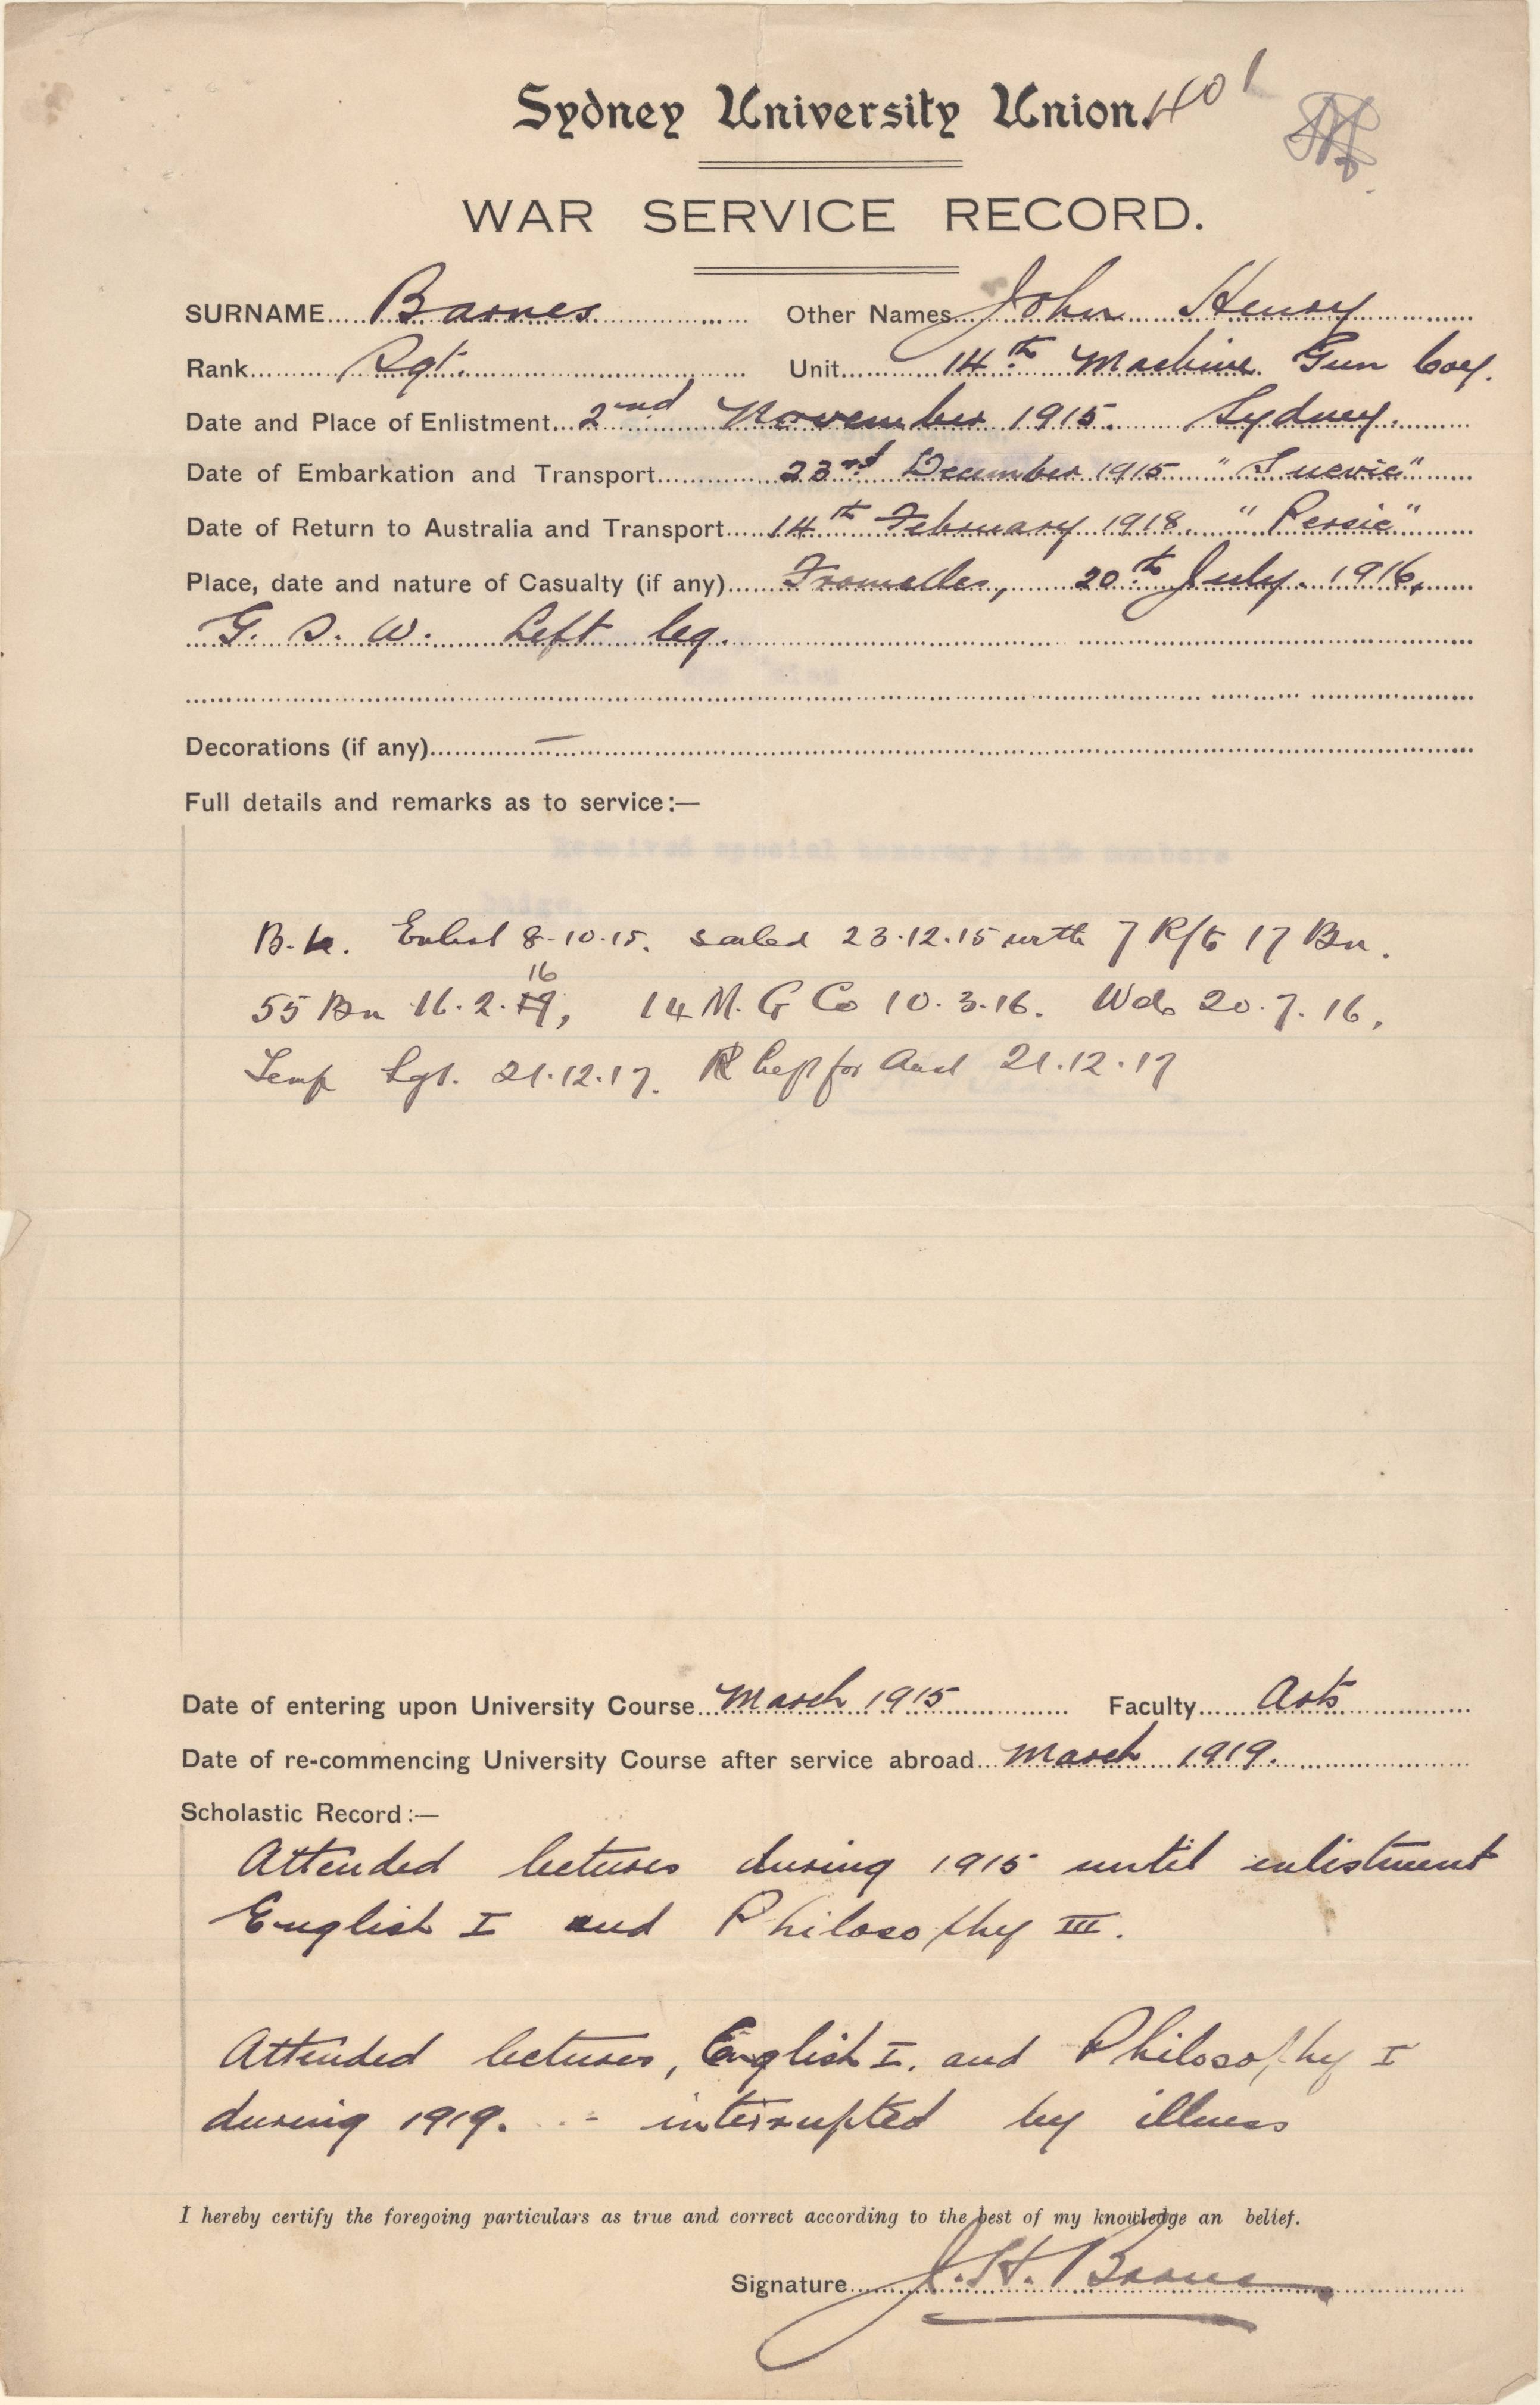 Sydney University Union. 401
WAR SERVICE RECORD.
SURNAME Barnes Other Names John Henry
Rank Sgt. Unit 14th Machine Gun Coy.
Date and Place of Enlistment 2nd November 1915. Sydney.
Date of Embarkation and Transport 23rd December 1915 "Suevic"
Date of Return to Australia and Transport 14th February 1918. "Persic"
Place, date and nature of Casualty (if any) Fromelles, 20th July. 1916,
G. S. W. Left leg.
Decorations (if any) —
Full details and remarks as to service:—
Received special honorary life members
badge.
Enlist 8-10-15. sailed 23.12.15 with 7 R/ts 17 Bn.
16
55 Bn 16.2.19, 14 M. G Co 10.3.16. Wds 20.7.16,
Temp Sgt. 21.12.17. left for Aust 21.12.17
Date of entering upon University Course March 1915 Faculty Arts
Date of re-commencing University Course after service abroad March 1919.
Scholastic Record:—
Attended lectures during 1915 until enlistment
English I and Philosophy III.
Attended lectures, English I. and Philosophy I
during 1919. - interrupted by illness
I hereby certify the foregoing particulars as true and correct according to the best of my knowledge an belief.
Signature J. H. Barnes